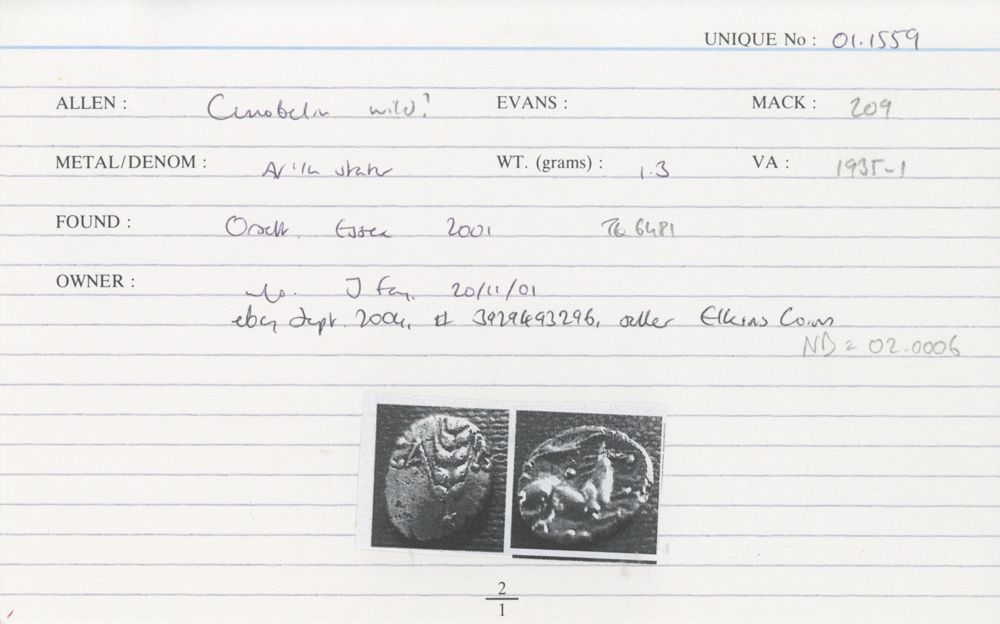 UNIQUE No : 01.1559
ALLEN : Cunobelin wild? EVANS : MACK : 209
METAL/DENOM : AV 1/4 stater WT. (grams) : 1.3 VA : 1935-1
FOUND : Orsett. Essex 2001 TQ 6481
OWNER : J Fay. 20/11/01
ebay Sept. 2004, # 3929493296, seller Elkins Coins
NB = 02.0006
2
1